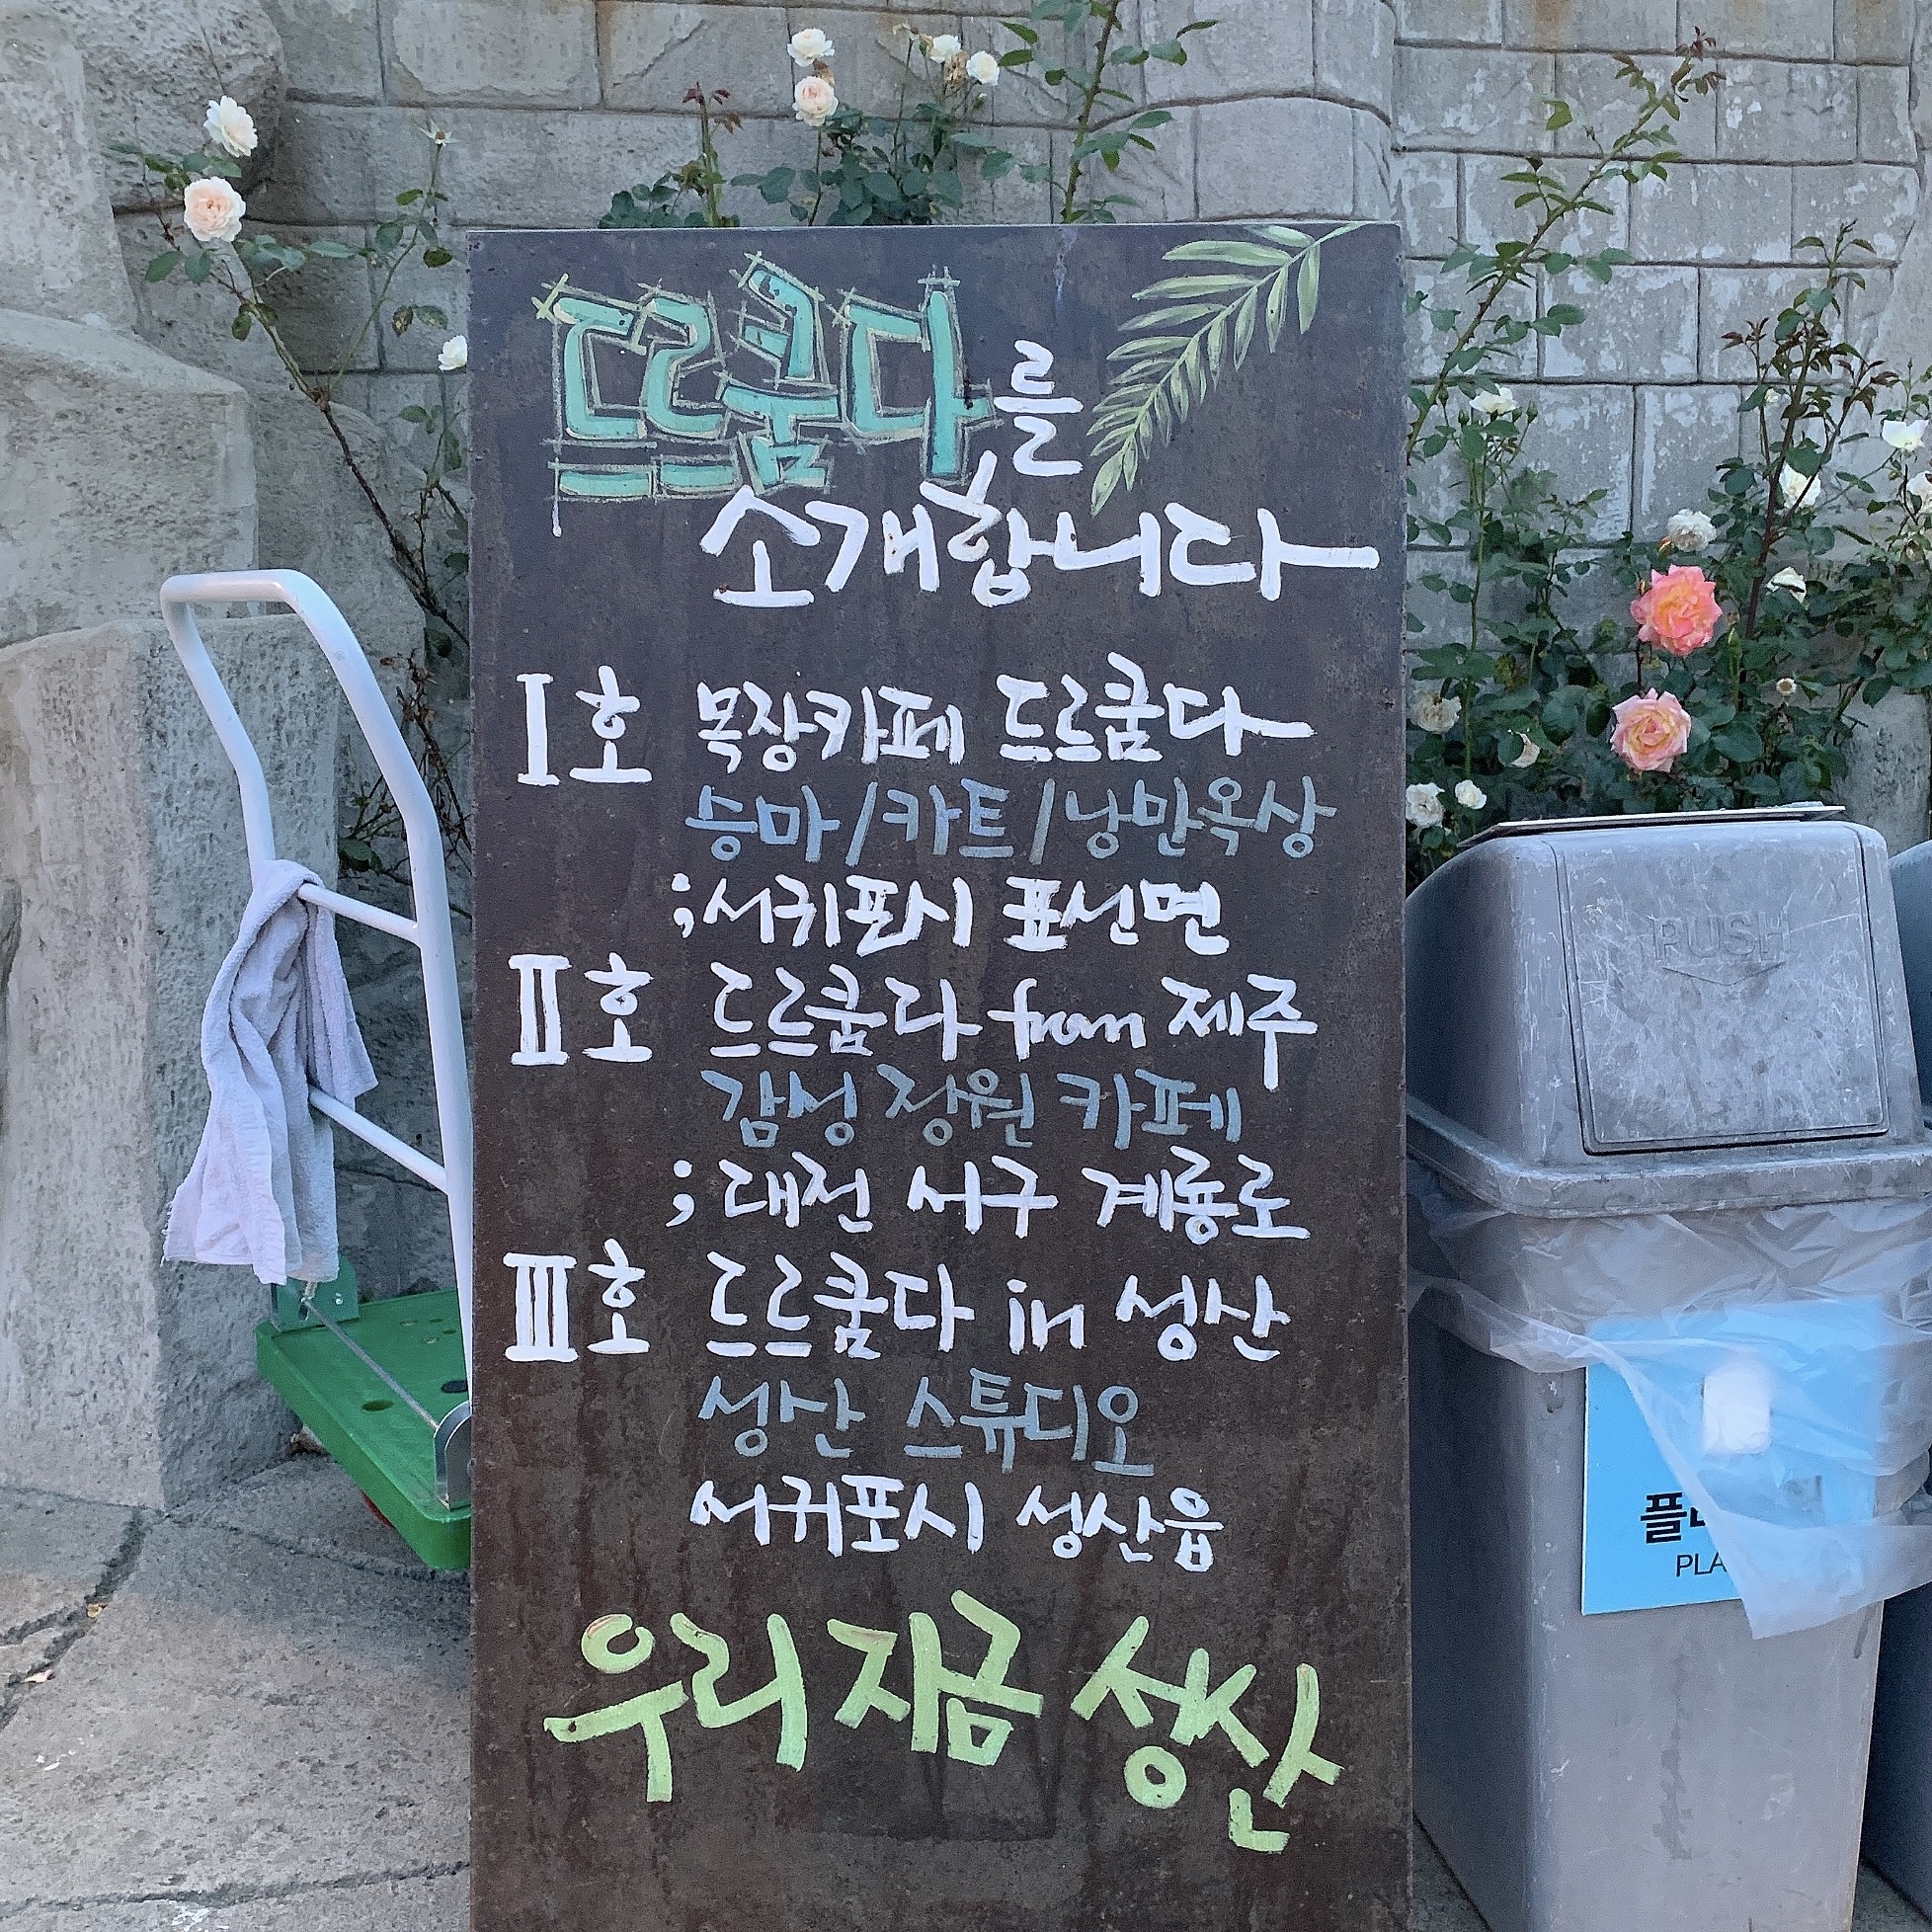 드르쿰다를
소개합니다
Ⅰ호 목장카페 드르쿰다
승마/카트/낭만옥상
;서귀포시 표선면
Ⅱ호 드르쿰다 from 제주
감성 정원 카페
;대전 서구 계룡로
Ⅲ호 드르쿰다 in 성산
성산 스튜디오
서귀포시 성산읍
우리 지금 성산
PUSH